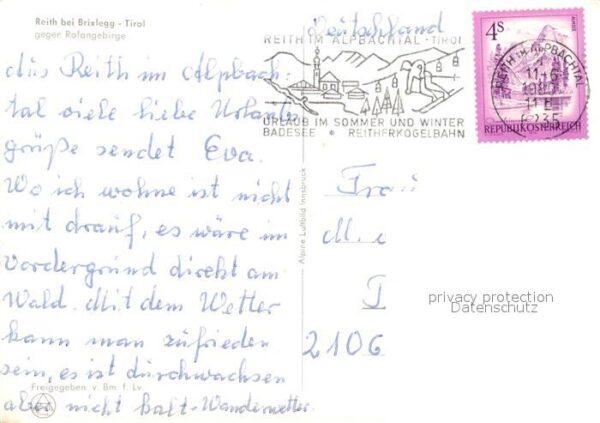 Reith bei Brixlegg - Tirol
gegen Rofangebirge
Deutschland
REITH IM ALPBACHTAL - TIROL
URLAUB IM SOMMER UND WINTER
BADESEE REITHERKOGELBAHN
4S
REPUBLIK ÖSTERREICH
REITH IM ALPBACHTAL
11.-6
11-
6235
Aus Reith im Alpbach-
tal viele liebe Urlaubs
grüße sendet Eva.
Wo ich wohne ist nicht
mit drauf, es wäre im
Vordergründ direkt am
Wald. Mit dem Wetter
kann man zufrieden
sein, es ist durchwachsen
aber nicht halt - Wanderwetter.
Alpine Luftbild Innsbruck
Frau
M.
2106
privacy protection
Datenschutz
Freigegeben v. Bm. f. Lv.